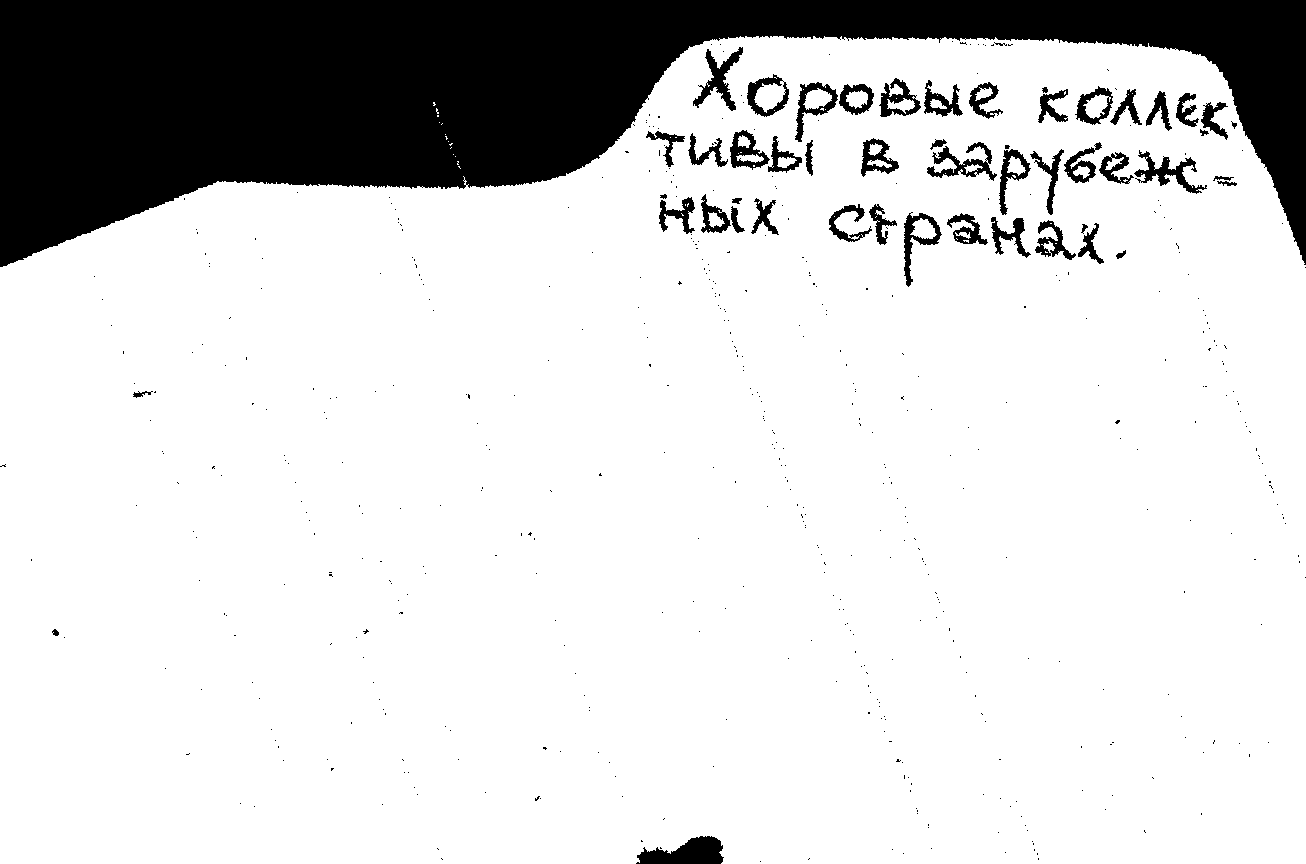 Хоровые коллек-
тивы в зарубеж-
ных странах.